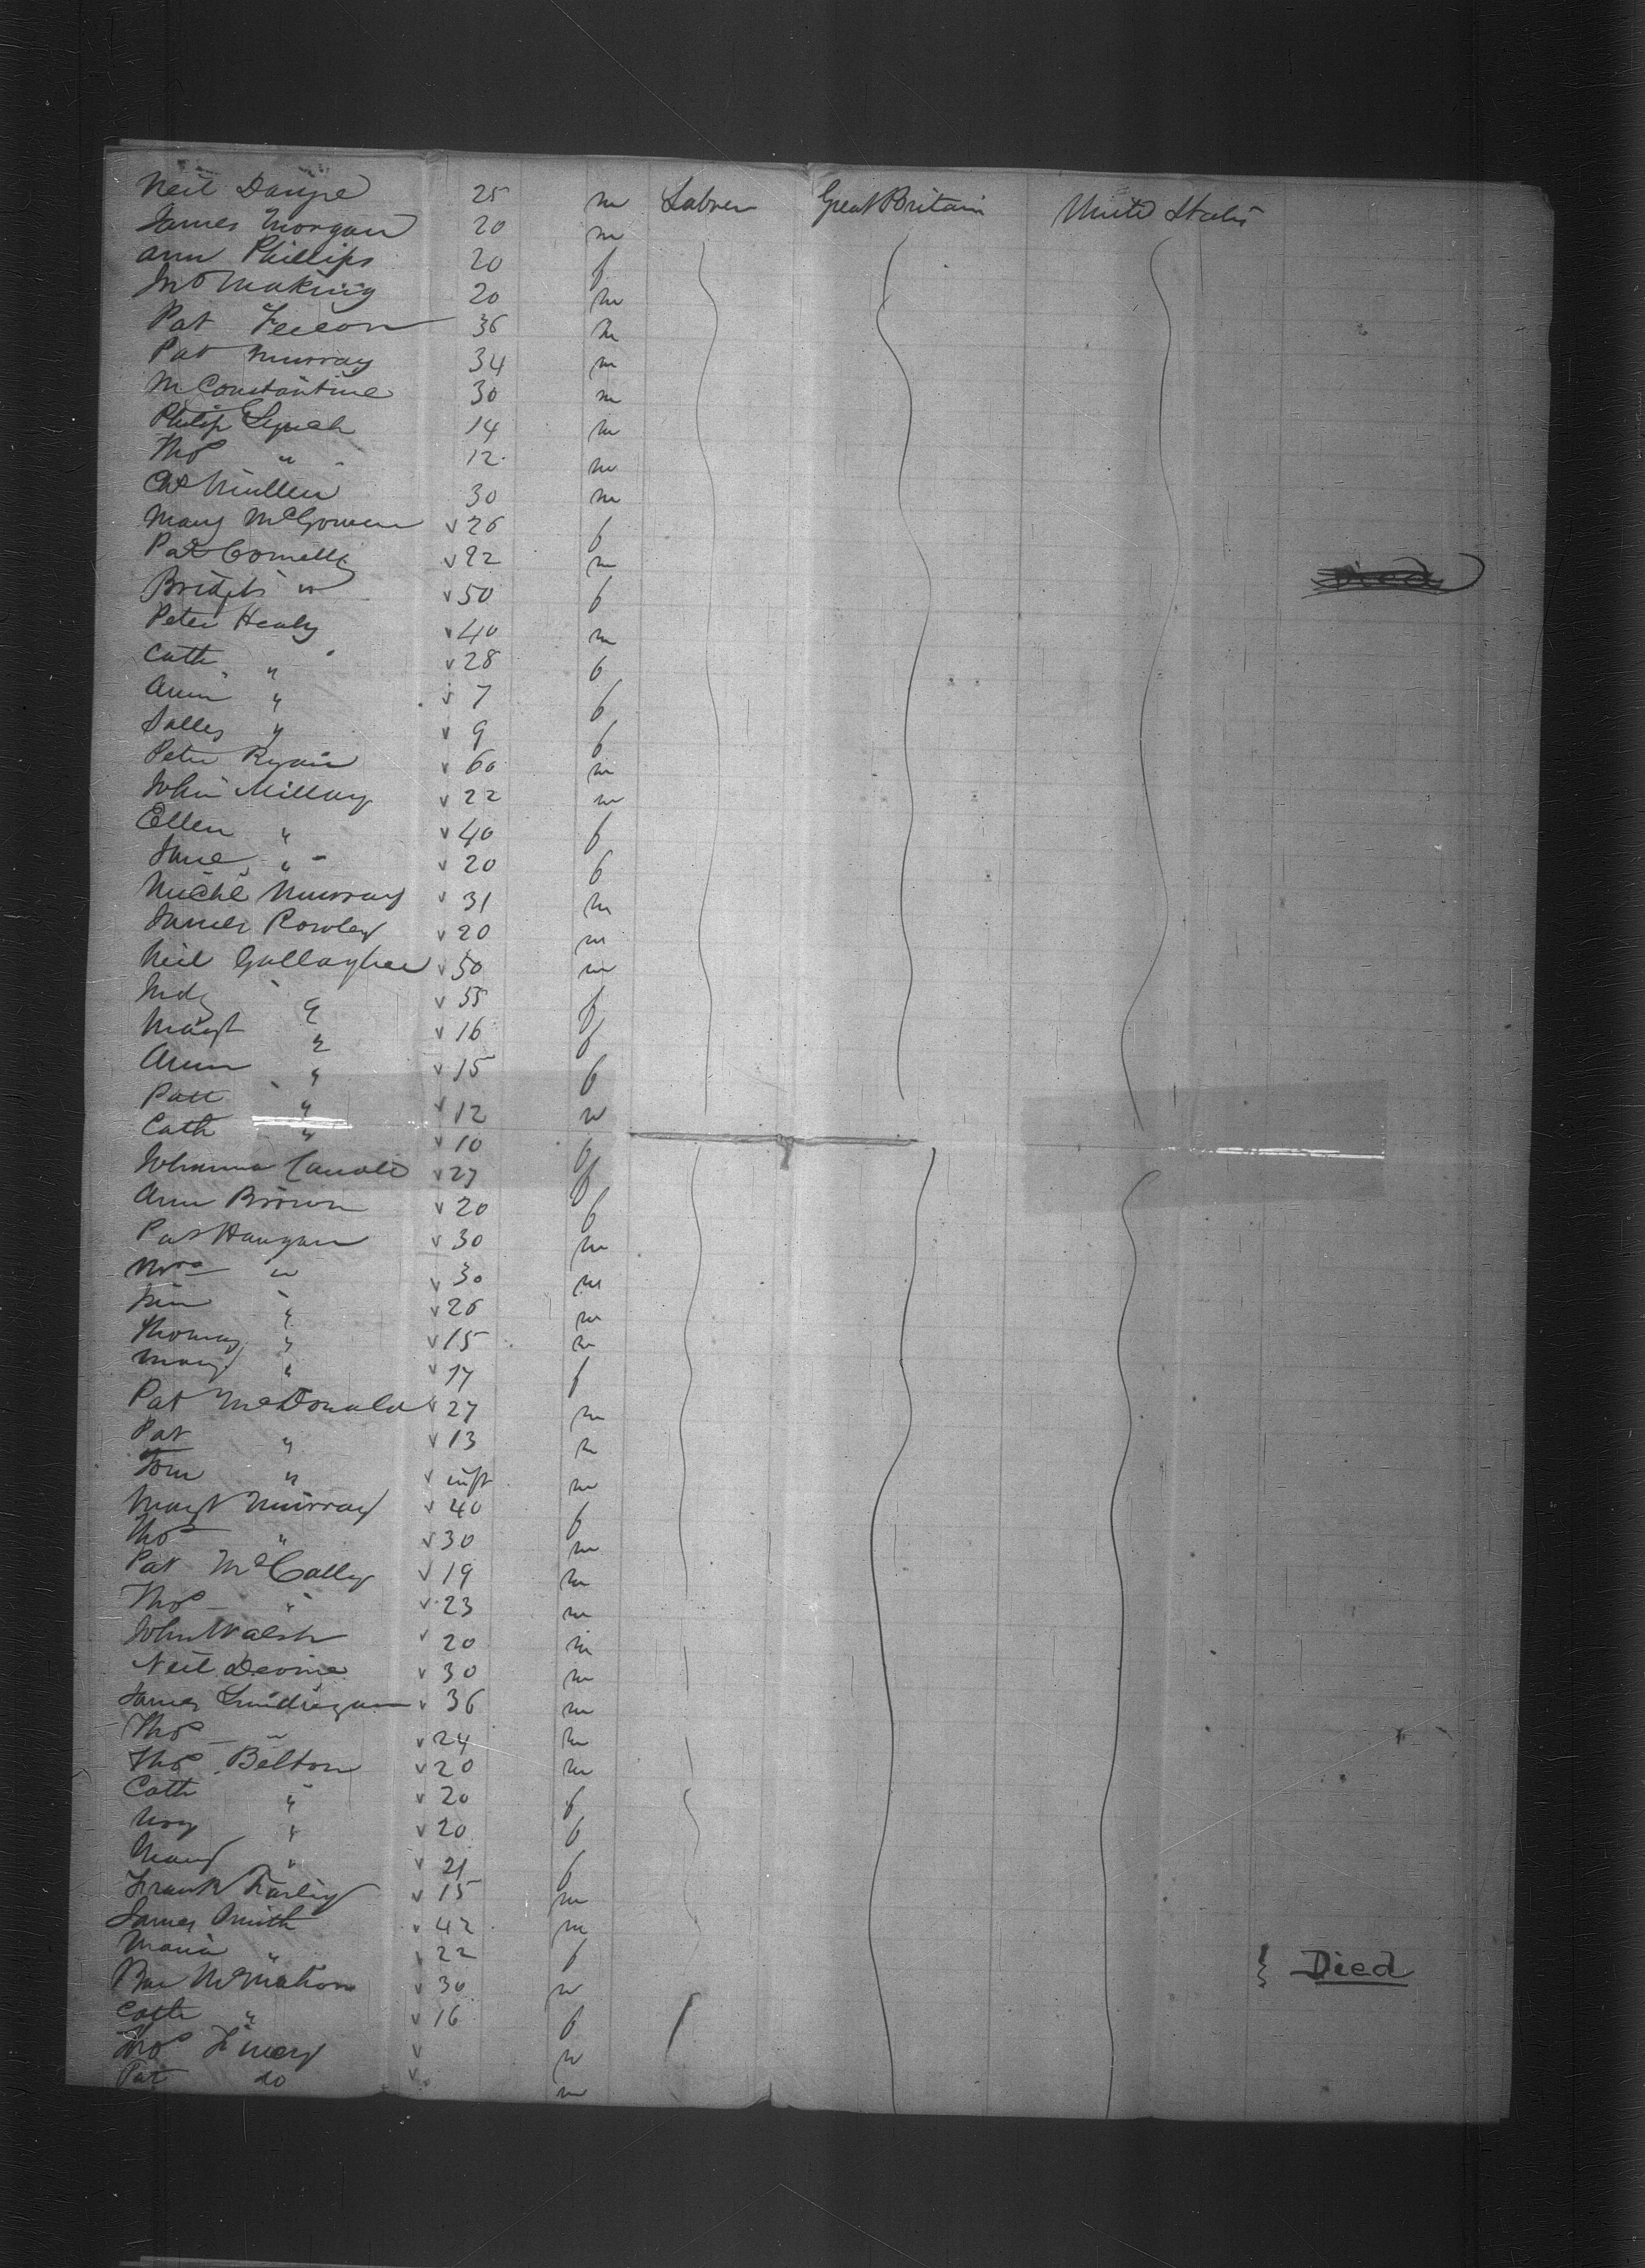 Neil 25 m Labrer Great Britain United States
James Morgan 20 m
Ann Phillips 20 f
Jno Making 20 m
Pat 36 m
Pat Murray 34 m
M Constantine 30 m
Philip Lynch 14 m
Thos " 12 m
Mullen 30 m
Mary McGowen v 26 f
Pat Connelly v 22 m Died
Bridget " v 50 f
Peter Healy v 40 m
Cath " v 28 f
Ann " v 7 f
Salley " v 9 f
Peter Ryan v 60 m
John Millay v 22 m
Ellen " v 40 f
Jane " v 20 f
Michl Murray v 31 m
James Rowley v 20 m
Neil Gallagher v 50 m
" v 55 f
Margt " v 16 f
Ann " v 15 f
Patt " v 12 m
Cath " v 10 f
Johanna v 27 f
Ann Brown v 20 f
Pat Haugan v 30 m
" v 30 m
Jim " v 26 m
Thomas " v 15 m
Mary " v 17 f
Pat McDonald v 27 m
Pat " v 13 m
Tom " v inft m
Margt Murray v 40 f
Thos " v 30 m
Pat McCally v 19 m
Thos " v 23 m
John Walsh v 20 m
Neil Devine v 30 m
James v 36 m
Thos " v 24 m
Thos Belton v 20 m
Cath " v 20 f
" v 20 f
Mary " v 21 f
Frank Farley v 15 m
James Smith v 42 m
Maria " v 22 f
McMahon v 30 m Died
Cath " v 16 f
v m
Pat do v m